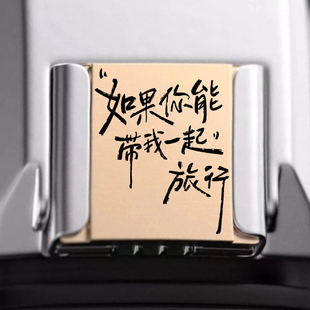 "如果你能
带我一起"
旅行